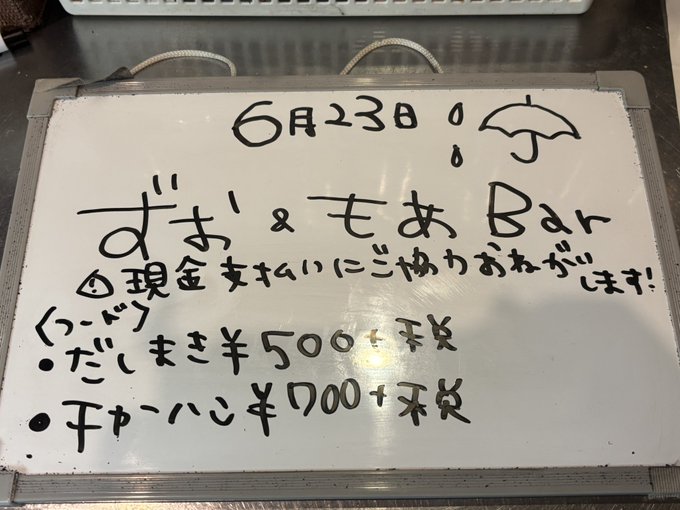 6月23日
ずお & もあ Bar
現金支払いにご協力おねがいします!
〈フード〉
・だしまき¥500+税
・チャーハン¥700+税